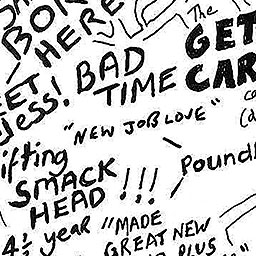 BOR
HERE
The
GET
CAR
BAD
TIME
ess!
"NEW JOB LOVE"
ifting
SMACK
HEAD !!!
Pound
4½ year
"MADE
GREAT NEW
PLUS